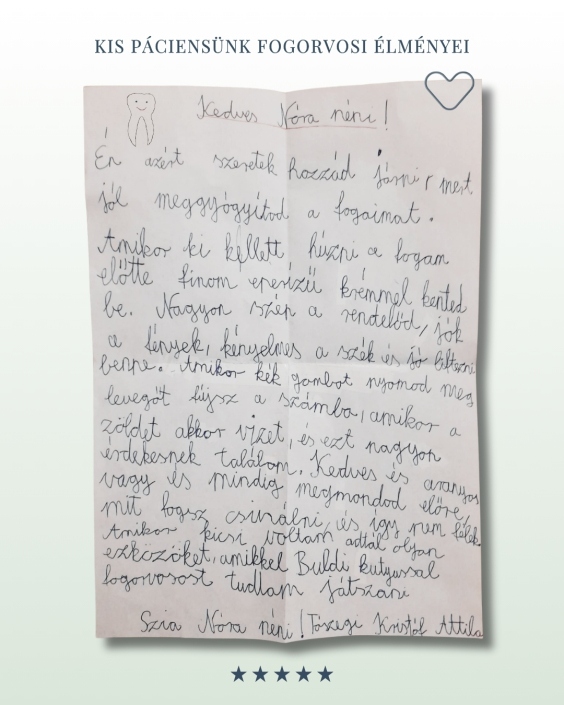 KIS PÁCIENSÜNK FOGORVOSI ÉLMÉNYEI
Kedves Nóra néni!
Én azért szeretek hozzád járni, mert
jól meggyógyítod a fogaimat.
Amikor ki kellett húzni a fogam
előtte finom eperízű krémmel kented
be. Nagyon szép a rendelőd, jók
a fények, kényelmes a szék és jó
benne. Amikor kék gombot nyomod meg
levegőt fújsz a számba, amikor a
zöldet akkor vizet, és ezt nagyon
érdekesnek találom. Kedves és aranyos
vagy és mindig megmondod előre,
mit fogsz csinálni, és így nem félek
Amikor kicsi voltam adtál olyan
eszközöket, amikkel Buldi kutyussal
fogorvosost tudtam játszani
Szia Nóra néni! Tőzegi Kristóf Attila